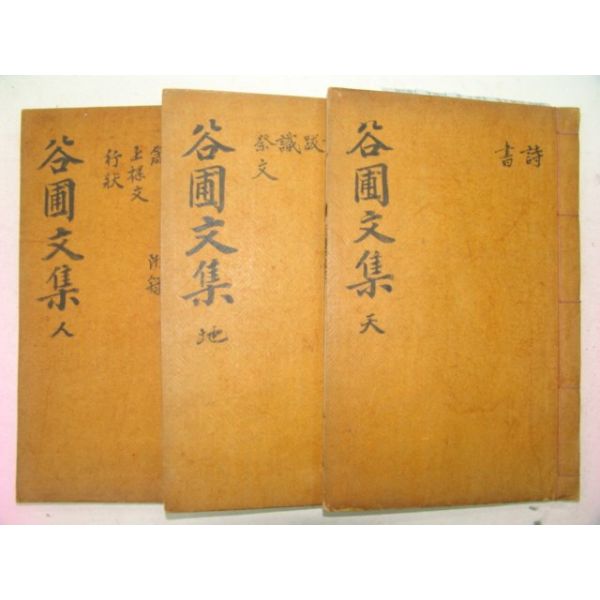 詩
書
谷圃文集 天
跋
識
祭文
谷圃文集 地
上樑文
行狀
附錄
谷圃文集 人